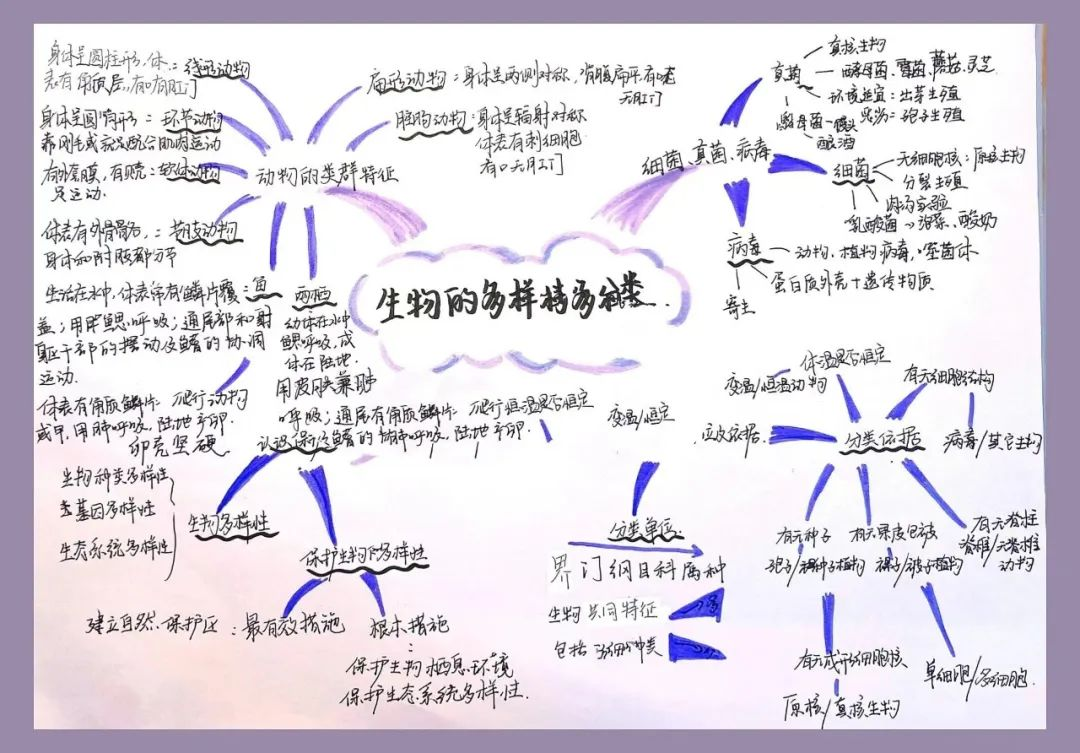 生物的多样
动物的类群特征
身体呈圆柱形，体：线形动物
表有角质层，有口有肛门
身体呈圆筒形：环节动物
靠刚毛或疣足配合肌肉运动
有外套膜，有贝壳：软体动物
足运动.
体表有外骨骼，：节肢动物
身体和附肢都分节
生活在水中，体表常有鳞片覆：鱼
盖；用鳃呼吸；通尾部和躯
干部的摆动及鳍的协调
运动.
体表有角质鳞片：爬行动物
或甲，用肺呼吸，陆地产卵.
卵壳坚硬
扁形动物：身体呈两侧对称，背腹扁平，有口
无肛门
腔肠动物：身体呈辐射对称
体表有刺细胞
有口无肛门
两栖
幼体在水中
鳃呼吸，成
体在陆地.
用皮肤兼肺
呼吸；通尾有角质鳞片
肺呼吸，陆地产卵.
细菌、真菌、病毒
真菌
真核生物
酵母菌、霉菌、蘑菇、灵芝
环境适宜：出芽生殖
孢子生殖
酵母菌－馒头
酿酒
细菌
无细胞核：原核生物
分裂生殖
肉汤实验
乳酸菌→泡菜、酸奶
病毒
动物、植物病毒、噬菌体
蛋白质外壳＋遗传物质
寄生
生物多样性
生物种类多样性
基因多样性
生态系统多样性
保护生物的多样性
建立自然保护区：最有效措施
根本措施
保护生物栖息环境
保护生态系统多样性.
恒温是否恒定
变温/恒定
分类单位.
界门纲目科属种
生物共同特征
包括
种类
分类依据
体温是否恒定
变温/恒温动物
有无细胞结构
病毒/其它生物
有无种子
孢子/种子植物
有无果皮包被
裸子/被子植物
有无脊柱
脊椎/无脊椎
动物
有无成形细胞核
原核/真核生物
单细胞/多细胞.